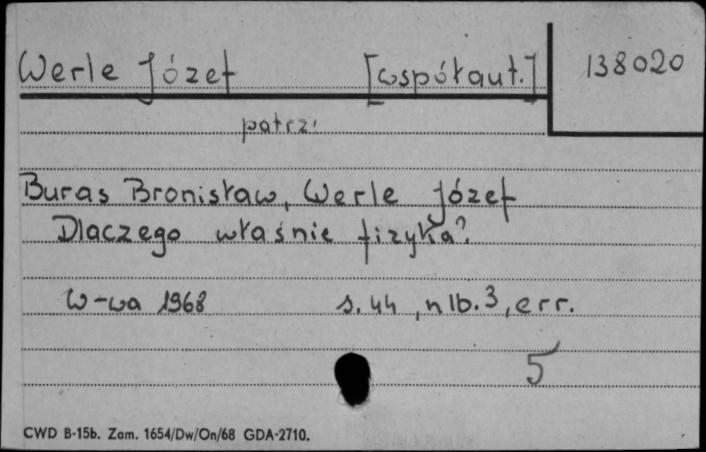 Werle Józef [współaut.] 138020
patrz:
Buras Bronisław, Werle Józef
Dlaczego właśnie fizyka?
W-wa 1968 s. 44, nlb. 3, err.
5
CWD B-15b. Zam. 1654/Dw/On/68 GDA-2710.